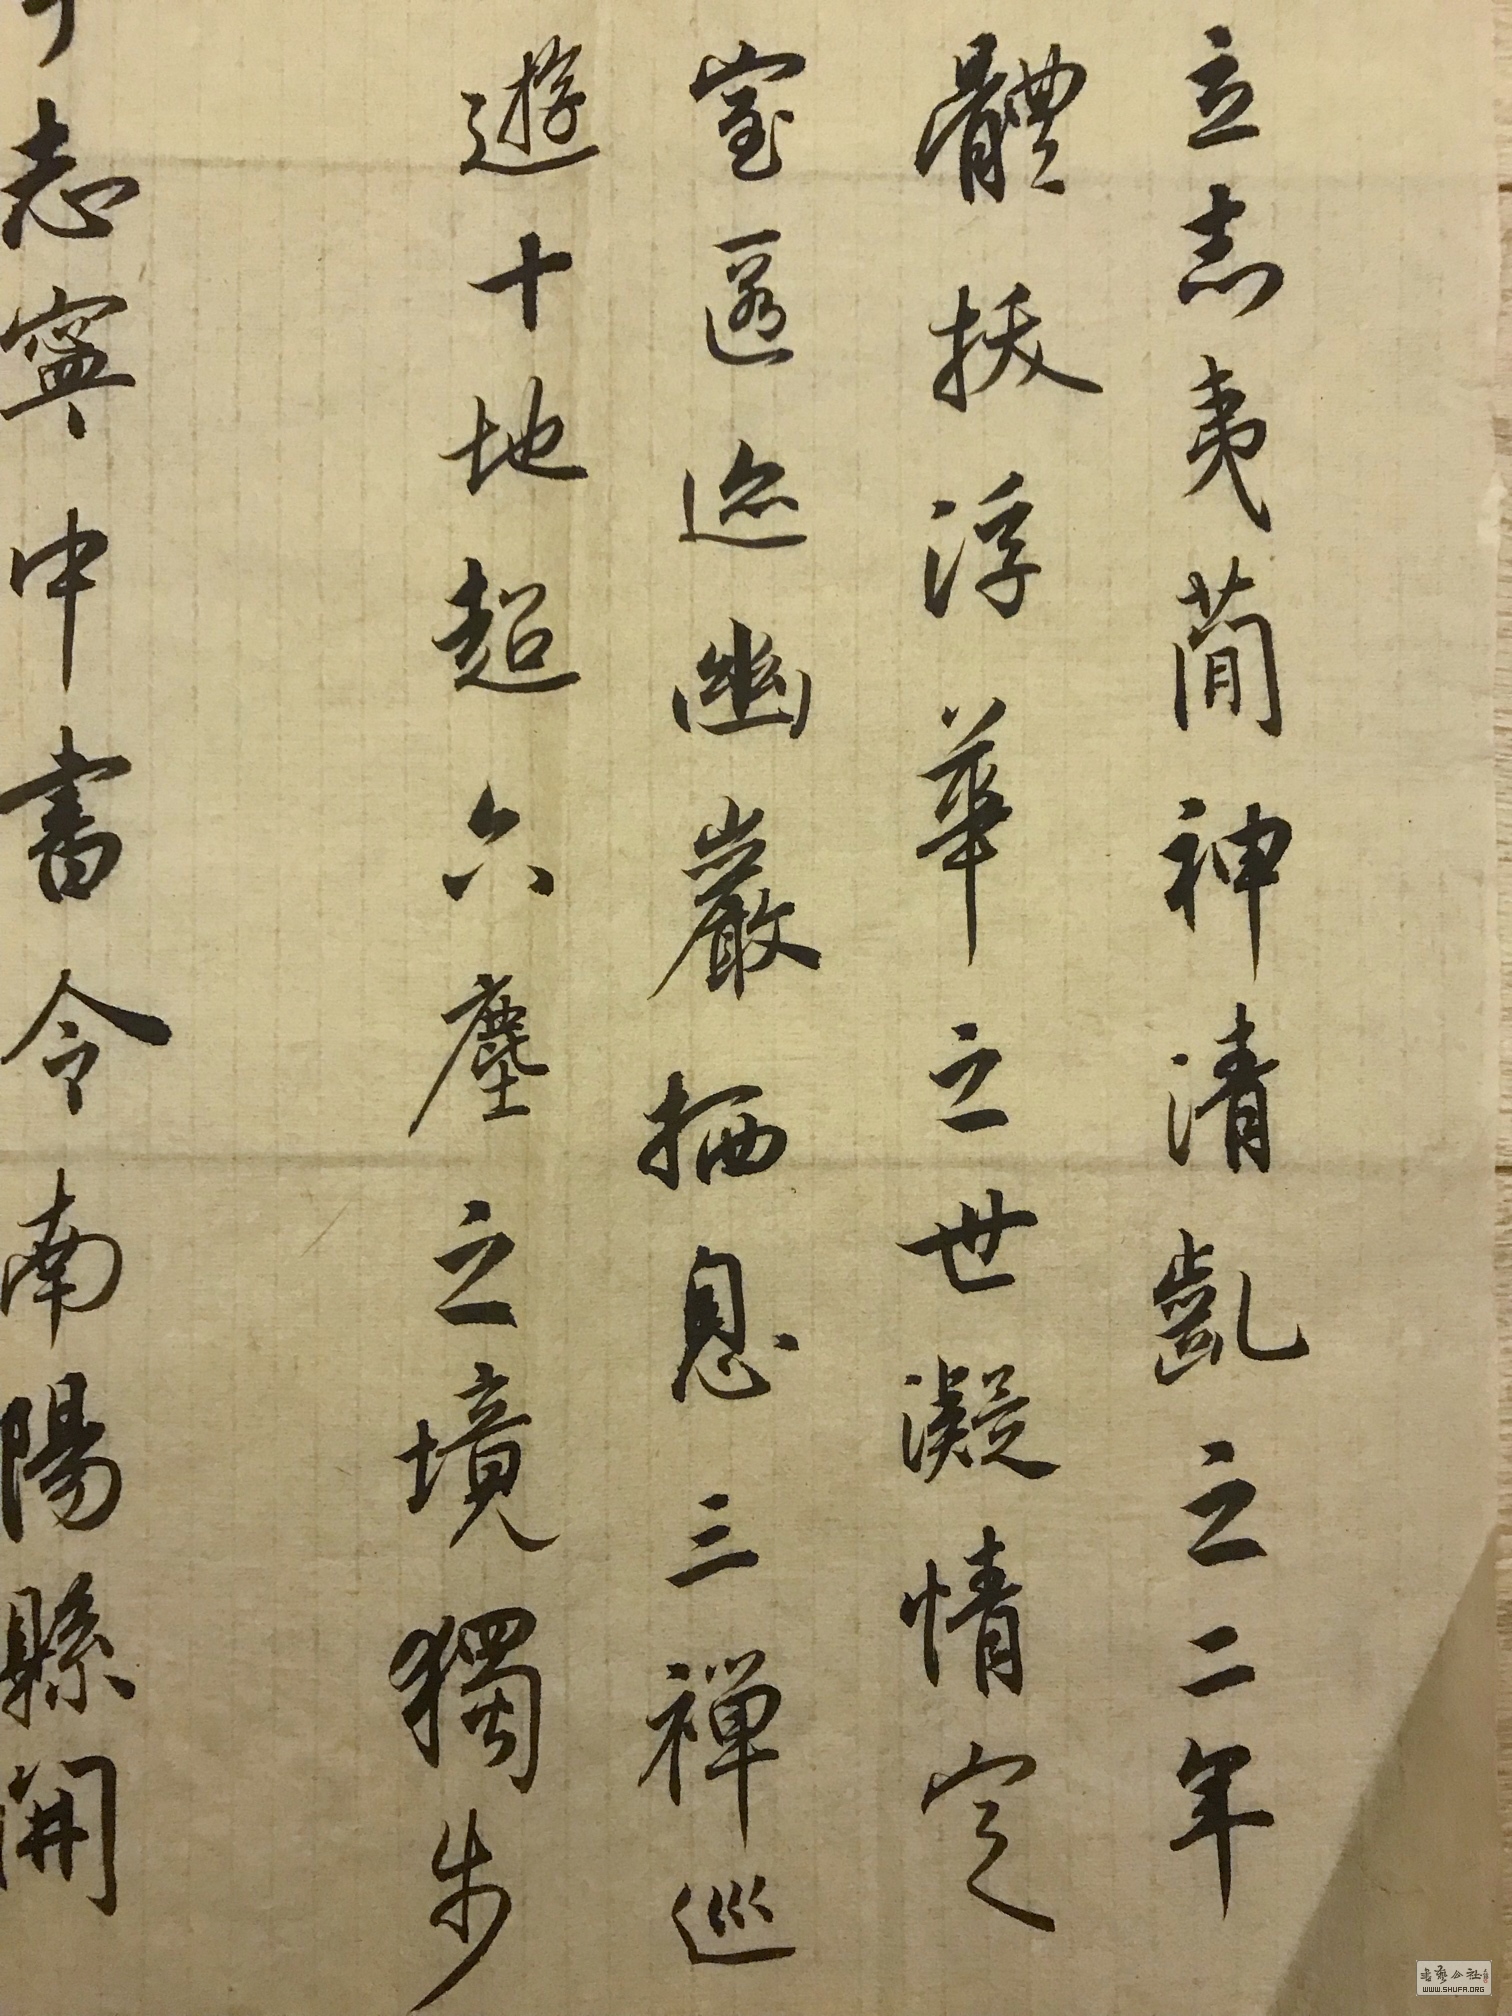 立志夷簡神清齓之二年
體拔浮華之世凝情定
室匿迹幽巖栖息三禪巡
遊十地超六塵之境獨步
志寧中書令南陽縣開
書藝公社
WWW.SHUFA.ORG